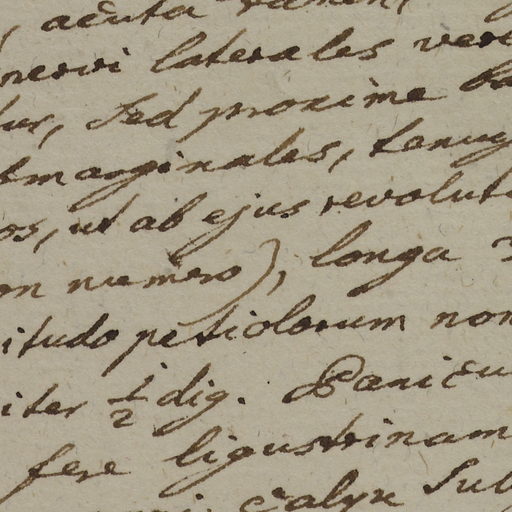 , acuta
nervi laterales ver
lus, sed proxime ba
tmarginales, tenu
os, ut ab ejus revolut
on numero), longa
itudo petiolorum non
iter 1/2 dig. Panicu
fere ligustrinam
calyx Sub